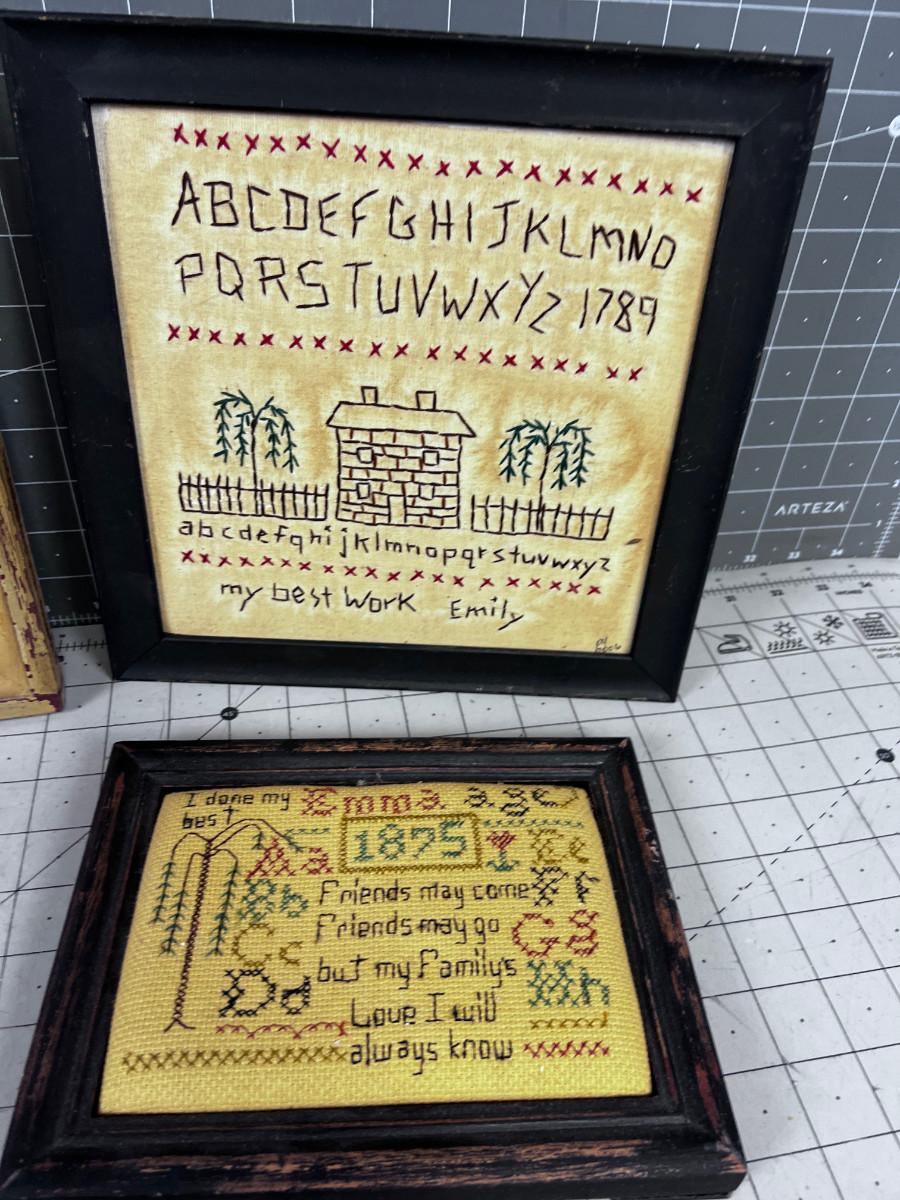 ABCDEFGHIJKLMNO
PQRSTUVWXYZ 1789
abcdefghijklmnopqrstuvwxyz
my best Work Emily
ARTEZA
31 32 33 34
32 33 34
INCHES
I done my
best
Emma age
1875
Aa
Ee
Bb
Friends may come
Ff
Cc
Friends may go
Gg
Dd
but my Family's
Hh
Love I will
always know